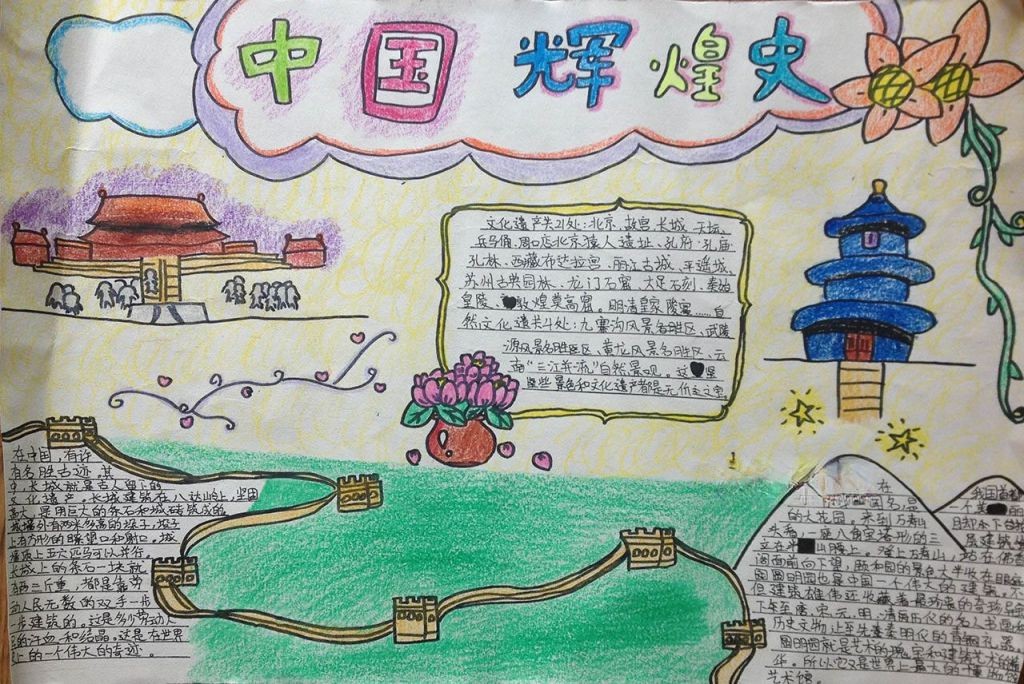 中国辉煌史
文化遗产共21处：北京、故宫、长城、天坛、
兵马俑、周口店北京猿人遗址、孔府、孔庙、
孔林、西藏布达拉宫、丽江古城、平遥城、
苏州古典园林、龙门石窟、大足石刻、秦始
皇陵、敦煌莫高窟。明清皇家陵寝……自
然文化遗共4处：九寨沟风景名胜区、武陵
源风景名胜区、黄龙风景名胜区、云
南“三江并流”自然景观。这
些景色和文化遗产都是无价之宝
在中国，有许
有名胜古迹，其
中，长城就是古人留下的
文化遗产。长城建筑在八达岭上，坚固
高大，是用巨大的条石和城砖筑成的
城墙外有两米多高的垛子，垛子
上有方形的瞭望口和射口。城
墙顶上五六匹马可以并行。
长城上的条石一块就
有两三斤重，都是靠劳
动人民无数的双手一步
一步建筑的。这是多少劳动人
民的汗血和结晶。这是在世界
上的一个伟大的奇迹。
在
园名，是
的大花园。来到万寿山
头看，一座八角宝塔形的三
立在半山腰上。登上万寿山，站在佛香
阁前面向下望，颐和园的景色大半收在眼底
圆明园也是中国一个伟大的建筑，
但建筑雄伟还收藏着最珍贵的奇珍异
下年至唐、宋、元、明、清历代的名人书画和
历史文物，上至先秦
圆明园就是艺术的瑰宝和建筑艺术的精
华。所以它又是世界上最大的博物馆
艺术馆。
我国首都